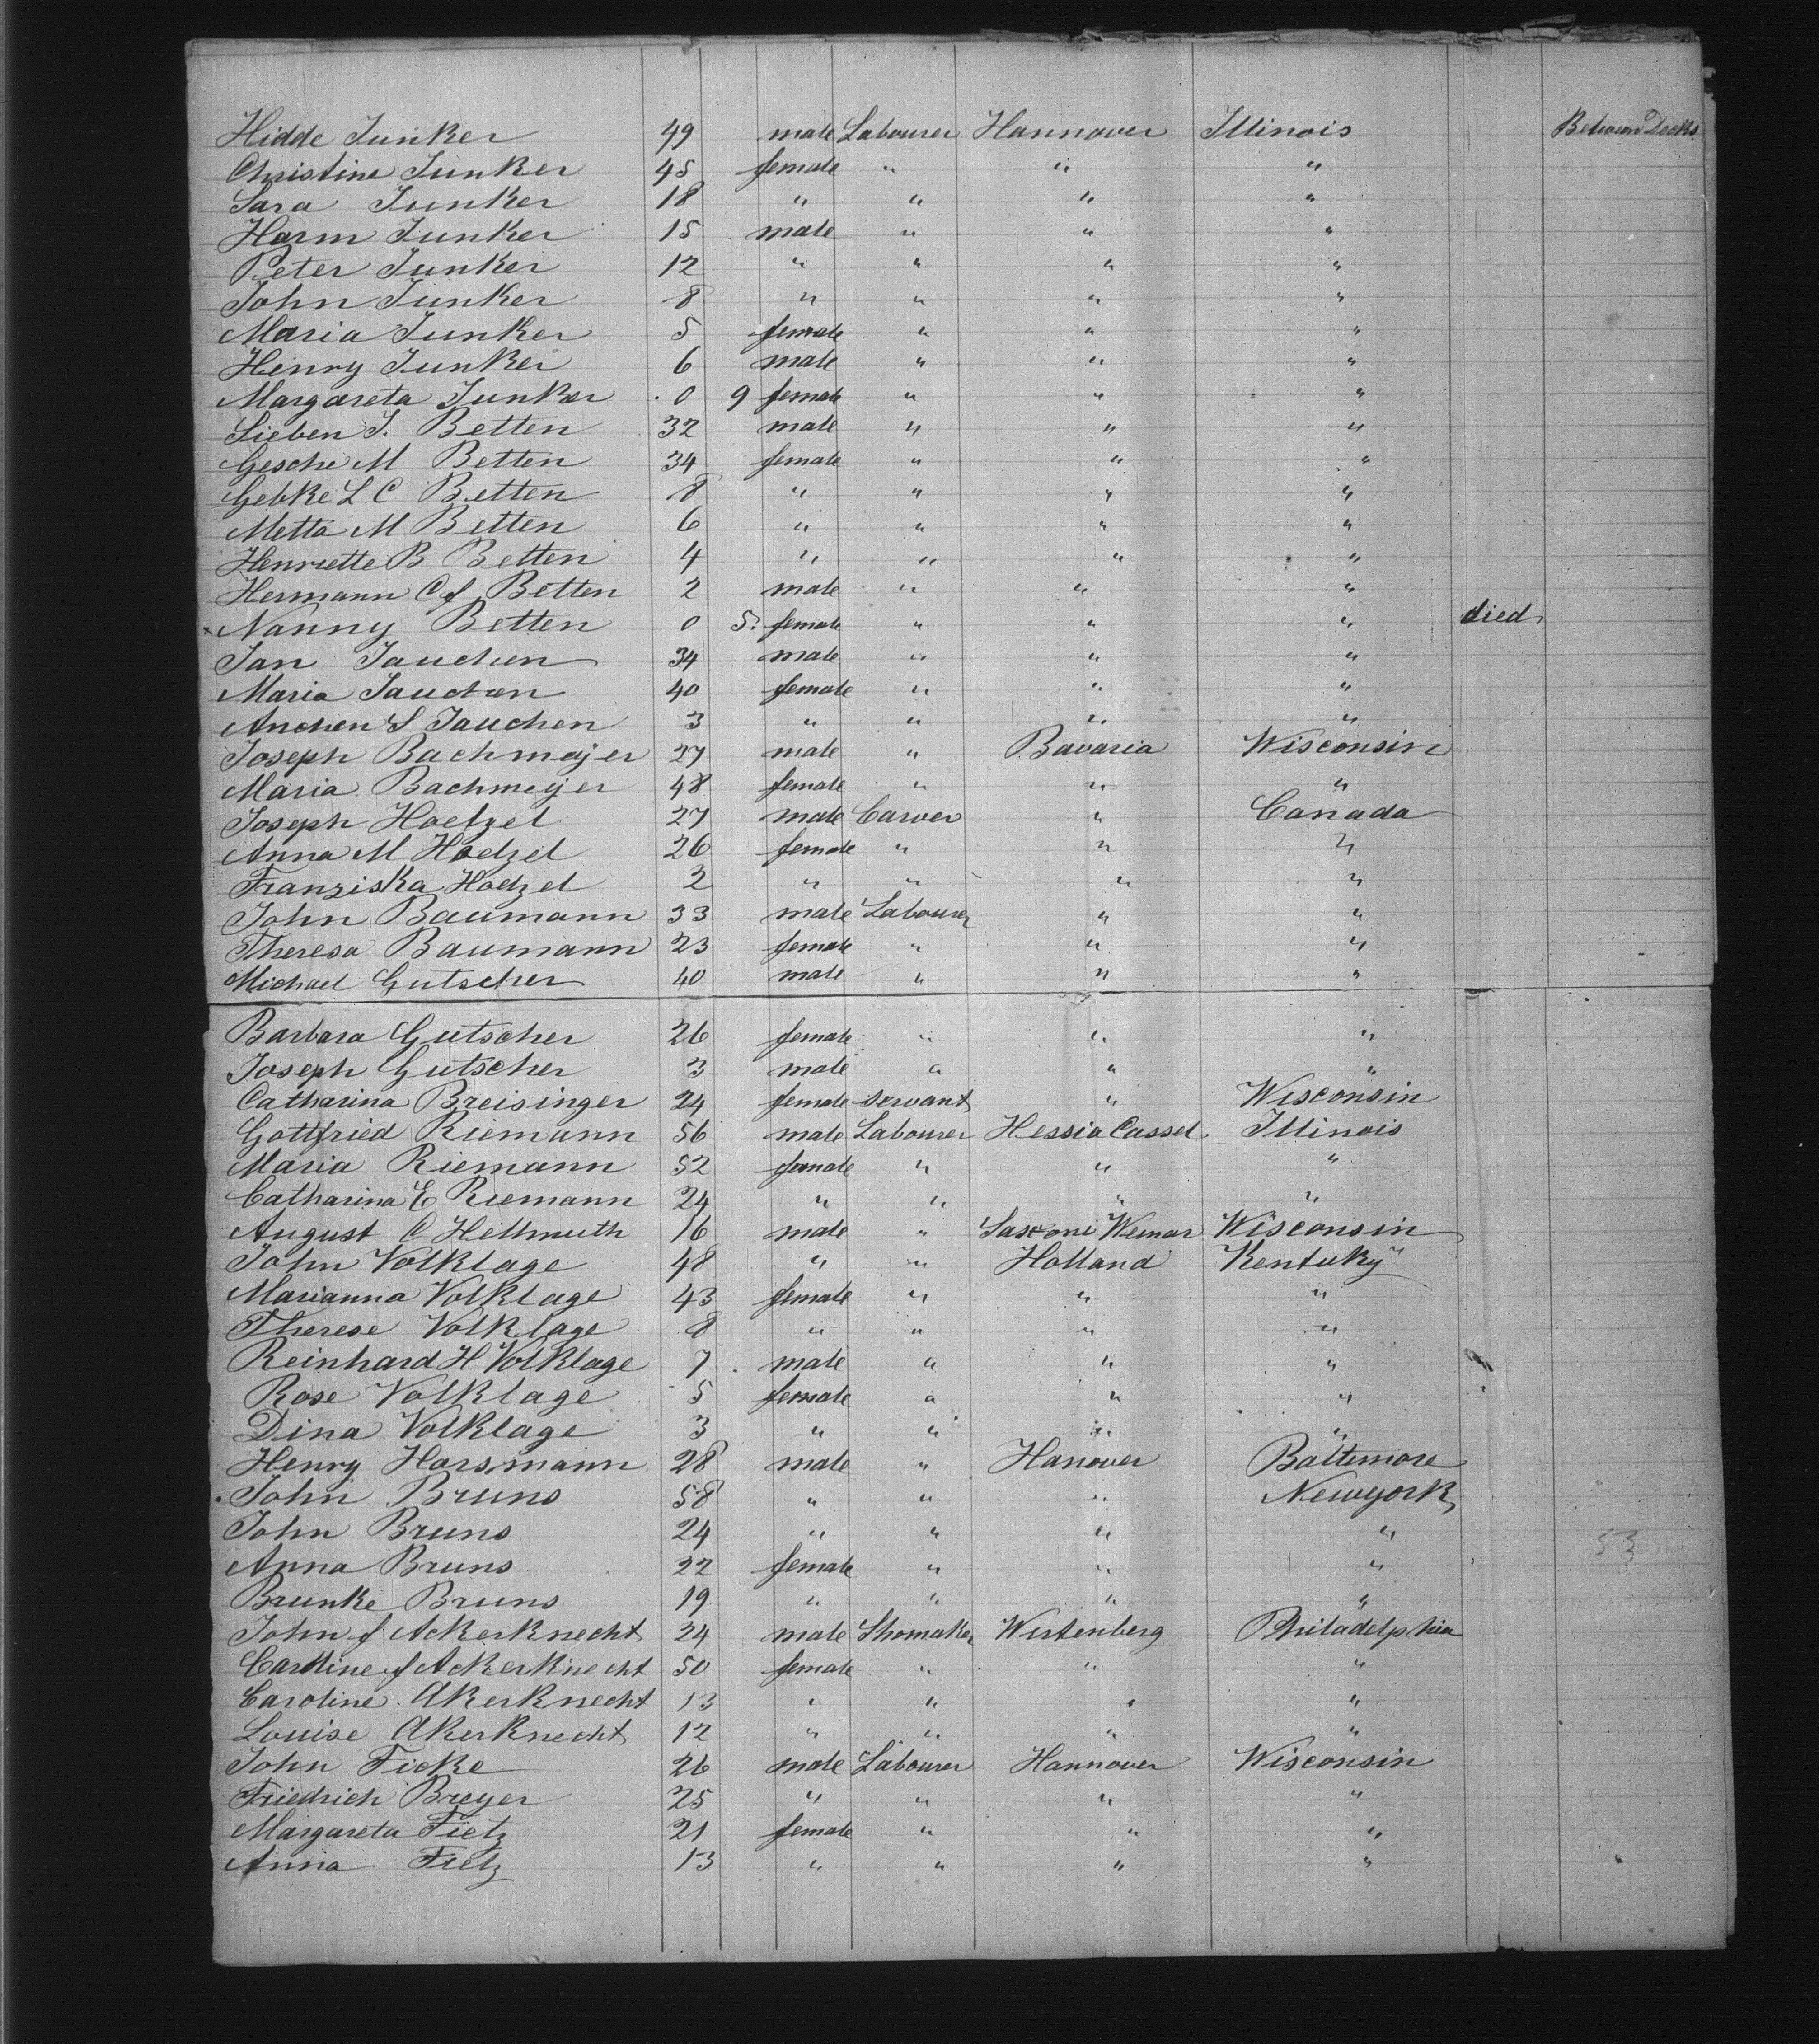 Hidde Junker 49 male Labourer Hannover Illinois Between Decks
Christine Junker 45 female " " "
Sara Junker 18 " " " "
Harm Junker 15 male " " "
Peter Junker 12 " " " "
John Junker 8 " " " "
Maria Junker 5 female " " "
Henry Junker 6 male " " "
Margareta Junker 0 9 female " " "
Sieben J. Betten 32 male " " "
Gesche M Betten 34 female " " "
Gebke L C Betten 8 " " " "
Metta M Betten 6 " " " "
Henriette B Betten 4 " " " "
Hermann C f Betten 2 male " " "
Nanny Betten 0 5. female " " " died
Jan Jauchen 34 male " " "
Maria Jauchen 40 female " " "
Anchen S Jauchen 3 " " " "
Joseph Bachmajer 27 male " Bavaria Wisconsin
Maria Bachmejer 48 female " " "
Joseph Hoelzel 27 male Carver " Canada
Anna M Hoelzel 26 female " " "
Franziska Hoelzel 2 " " " "
John Baumann 33 male Labourer " "
Theresa Baumann 23 female " " "
Michael Gutscher 40 male " " "
Barbara Gutscher 26 female " " "
Joseph Gutscher 3 male " " "
Catharina Breisinger 24 female servant " Wisconsin
Gottfried Riemann 56 male Labourer Hessia Cassel Illinois
Maria Riemann 52 female " " "
Catharina E Riemann 24 " " " "
August C Hellmuth 16 male " Saxoni Weimar Wisconsin
John Volklage 48 " " Holland Kentuky
Marianna Volklage 43 female " " "
Therese Volklage 8 " " " "
Reinhard H Volklage 7 male " " "
Rose Volklage 5 female " " "
Dina Volklage 3 " " " "
Henry Horsmann 28 male " Hanover Baltemore
John Bruns 58 " " " Newyork
John Bruns 24 " " " " 53
Anna Bruns 22 female " " "
Brunke Bruns 19 " " " "
John f Ackerknecht 24 male Shomaker Wirtenberg Philadelphia
Caroline f Ackerknecht 50 female " " "
Caroline Akerknecht 13 " " " "
Louise Akerknecht 12 " " " "
John Ficke 26 male Labourer Hannover Wisconsin
Friedrich Breyer 25 " " " "
Margareta Fietz 21 female " " "
Anna Fietz 13 " " " "